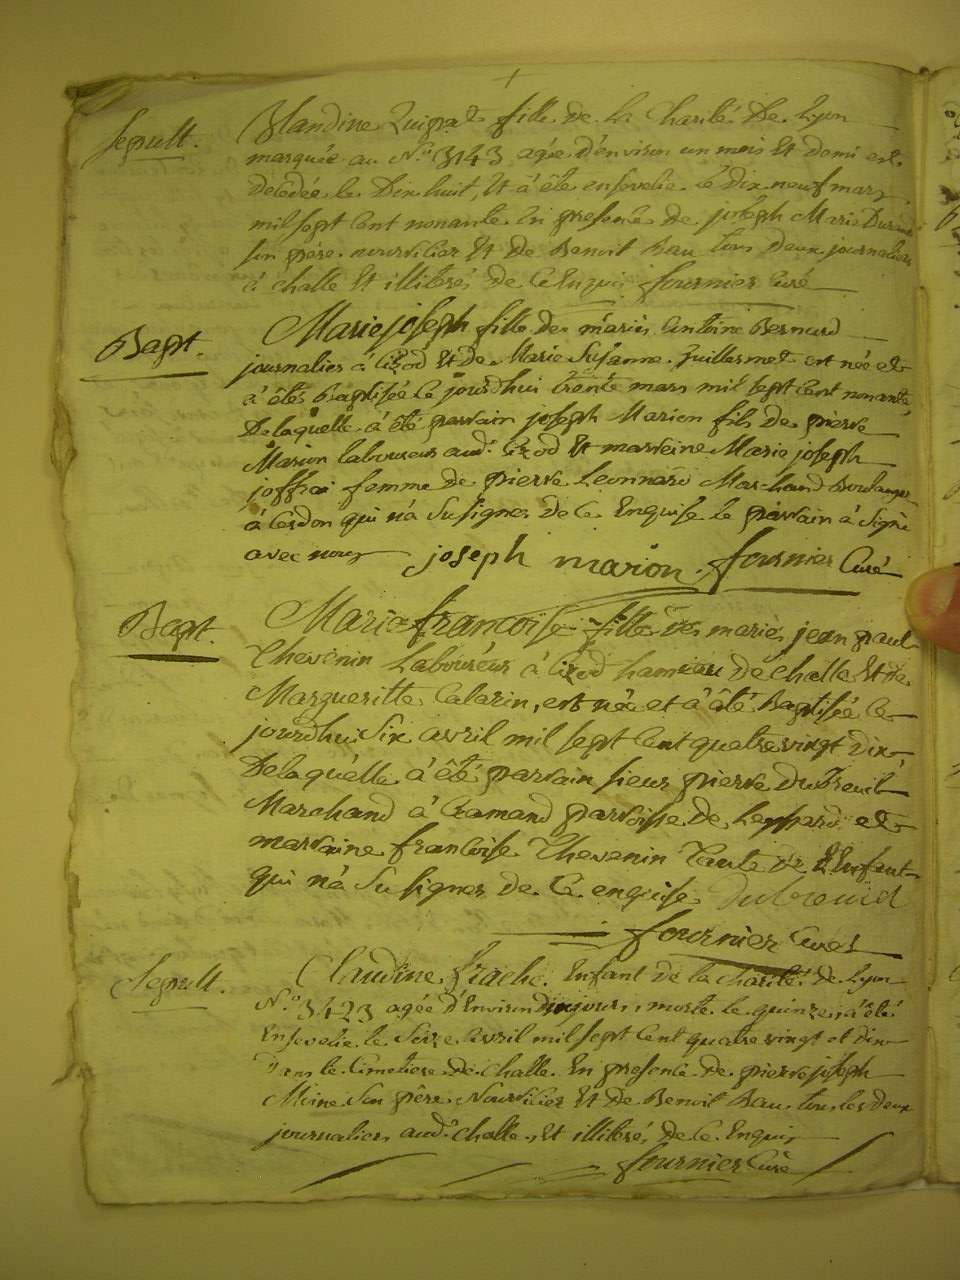 Sepult.
Blandine Quiprat fille de la Charité De Lyon
marquée au N.o 3143 agée d'environ un mois Et Demi est
Décédée le Dix huit, Et à été ensevelie le dix neuf mars
mil sept cent nonante En presence de joseph Marie Durand
son père nourricier Et de Benoit Bau tous deux journaliers
à challe Et illitérés de ce Enquis fournier Curé
Bapt.
Marie joseph fille des mariés Antoine Bernard
journalier à Cizod Et De Marie Susanne Juillermet est née et
à étés Baptisée ce jourdhui trente mars mil sept cent nonante,
De laquelle à été parrain joseph Marion fils de pierre
Marion laboureur aud. Cizod Et marreine Marie joseph
joffrai femme de pierre Leonnard Marchand Boulanger
à Cerdon qui n'a Su signer De Ce Enquise le parrain à Signé
avec nous joseph marion. fournier Curé
Bapt.
Marie françoise fille des mariés jean paul
Thevenin Laboureur à Cizod hameau de challe Et de
Margueritte Calarin, est née et à été Baptisée Ce
jourdhui Six avril mil sept Cent quatre vingt dix,
De laquelle à été parrain sieur pierre Dubreuil
Marchand à Cramand parroisse De Leyssard et
marraine françoise Thevenin Tante de L'Enfant
qui n'a Su signer de Ce enquise Dubreuil
fournier Curé
Sepult.
Claudine frache Enfant de la charité de Lyon
N.o 3423 agée d'Environ dix jours, morte le quinze, à été
Ensevelie le Seize Avril mil sept Cent quatre vingt et dix
Dans le Cimetiere de Challe En presence de pierre joseph
Moine Son père Nourricier Et De Benoit Bau, tous les deux
journaliers aud. challe, Et illiterés De Ce Enquis
fournier Curé